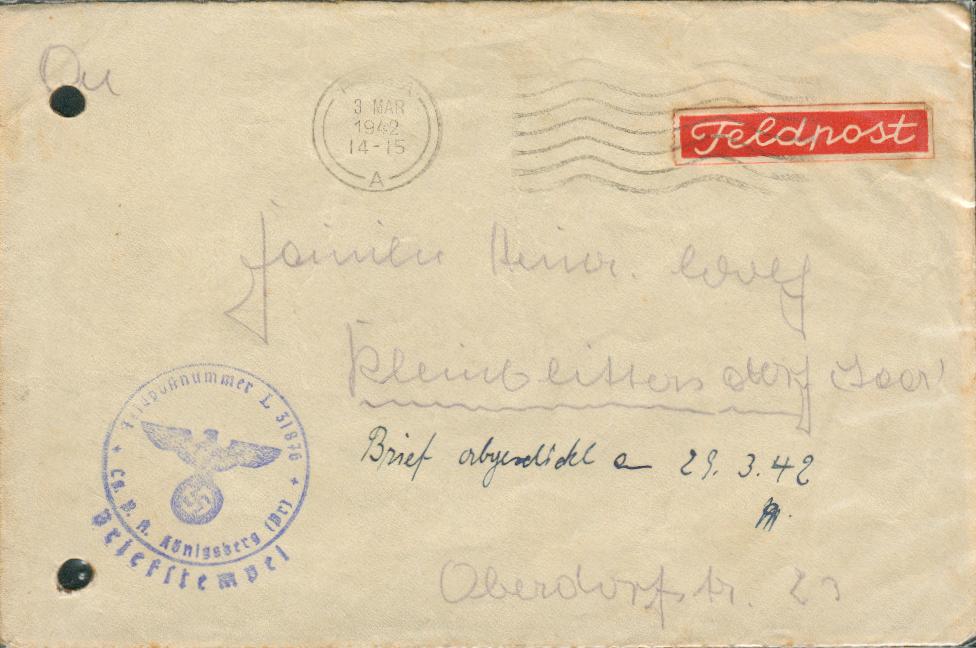 An
RIGA
3 MAR
1942
14-15
A
Feldpost
Familie Heinr. Wolf
Kleinblittersdorf Saar
Brief abgeschickt am 29.3.42
Oberdorfstr. 23
Feldpostnummer L 31876
Lg. P. A. Königsberg (Pr)
Briefstempel